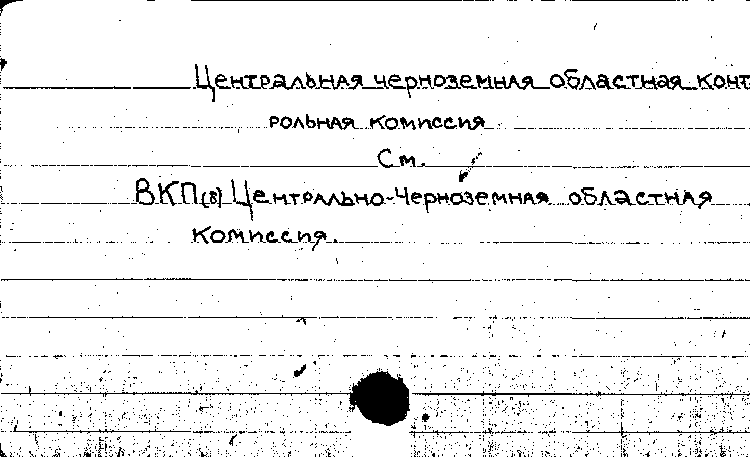 Центральная черноземная областная конт
рольная комиссия
См.
ВКП(б) Центрально-Черноземная областная
комиссия.